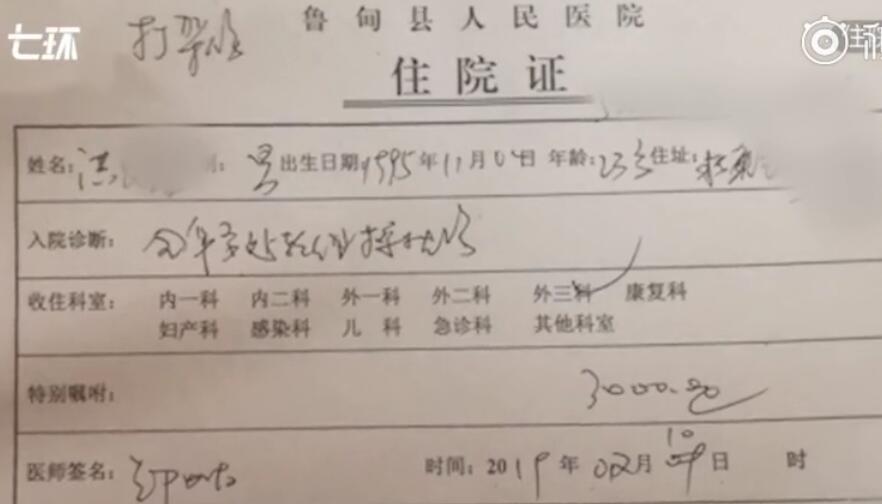 七环 打架伤 鲁甸县人民医院 住院
住院证
姓名:洪 别: 男 出生日期1995年11月04日 年龄:23岁 住址:
入院诊断: 全身多处软组织挫伤
收住科室: 内一科 内二科 外一科 外二科 外三科 康复科
妇产科 感染科 儿 科 急诊科 其他科室
特别嘱咐: 3000.00
医师签名: 时间:2019年02月10日 时